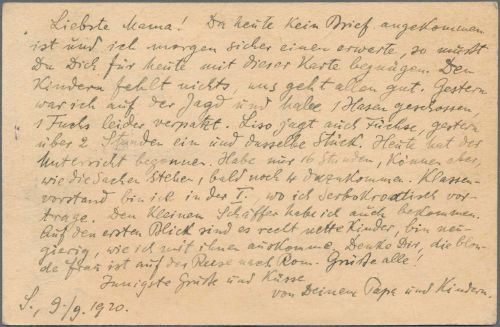 Liebste Mama! Da heute kein Brief angekommen
ist und ich morgen sicher einen erwarte, so mußt
Du Dich für heute mit dieser Karte begnügen. Den
Kindern fehlt nichts, uns geht allen gut. Gestern
war ich auf der Jagd und habe 1 Hasen geschossen
1 Fuchs leider verpatzt. Liso jagt auch Füchse, gestern
über 2 Stunden ein und dasselbe Stück. Heute hat der
Unterricht begonnen. Habe nur 16 Stunden, können aber,
wie die Sachen stehen, bald noch 4 dazukommen. Klassen-
vorstand bin ich in der I., wo ich Serbokroatisch vor-
trage. Den kleinen Schäffer habe ich auch bekommen.
Auf den ersten Blick sind es recht nette Kinder, bin neu-
gierig, wie ich mit ihnen auskomme. Denke Dir, die blon-
de Frau ist auf der Reise nach Rom. Grüße alle!
Innigste Grüße und Küsse
von Deinem Papa und Kindern.
S., 9./9. 1920.